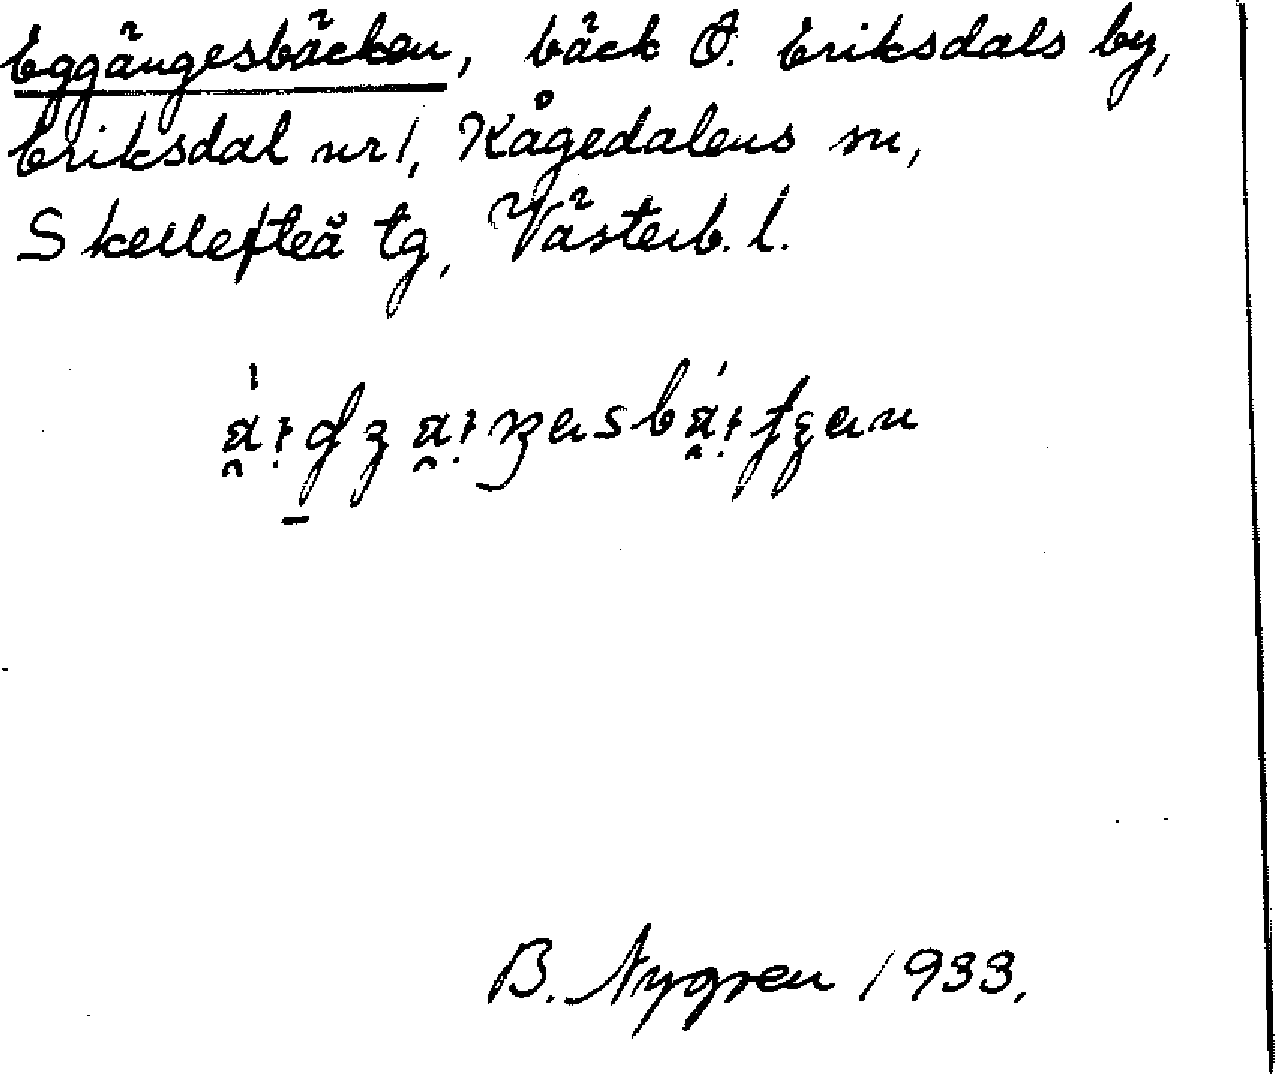 Eggängesbäcken, bäck Ö. Eriksdals by,
Eriksdal nr 1, Kågedalens sn,
Skellefteå tg, Västerb. l.
B. Nygren 1933.